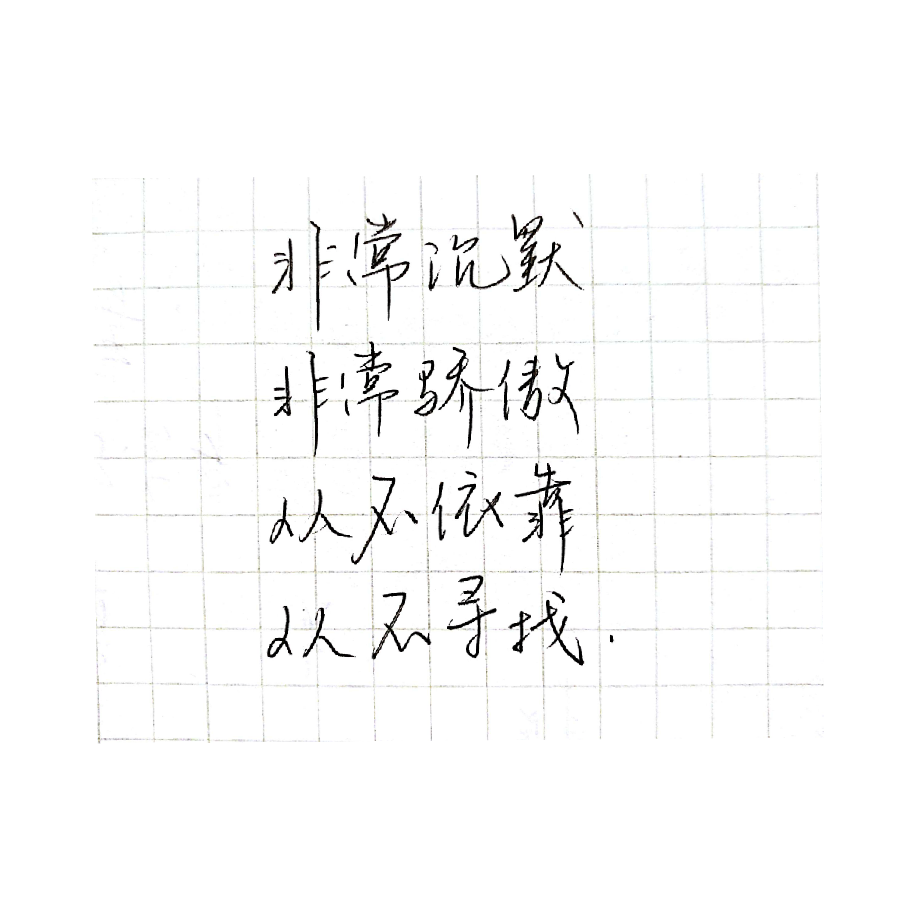 非常沉默
非常骄傲
从不依靠
从不寻找.